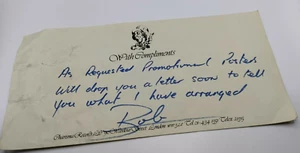 With Compliments
As Requested Promotional Poster
Will drop you a letter soon to tell
you what I have arranged
Rob
Street, London